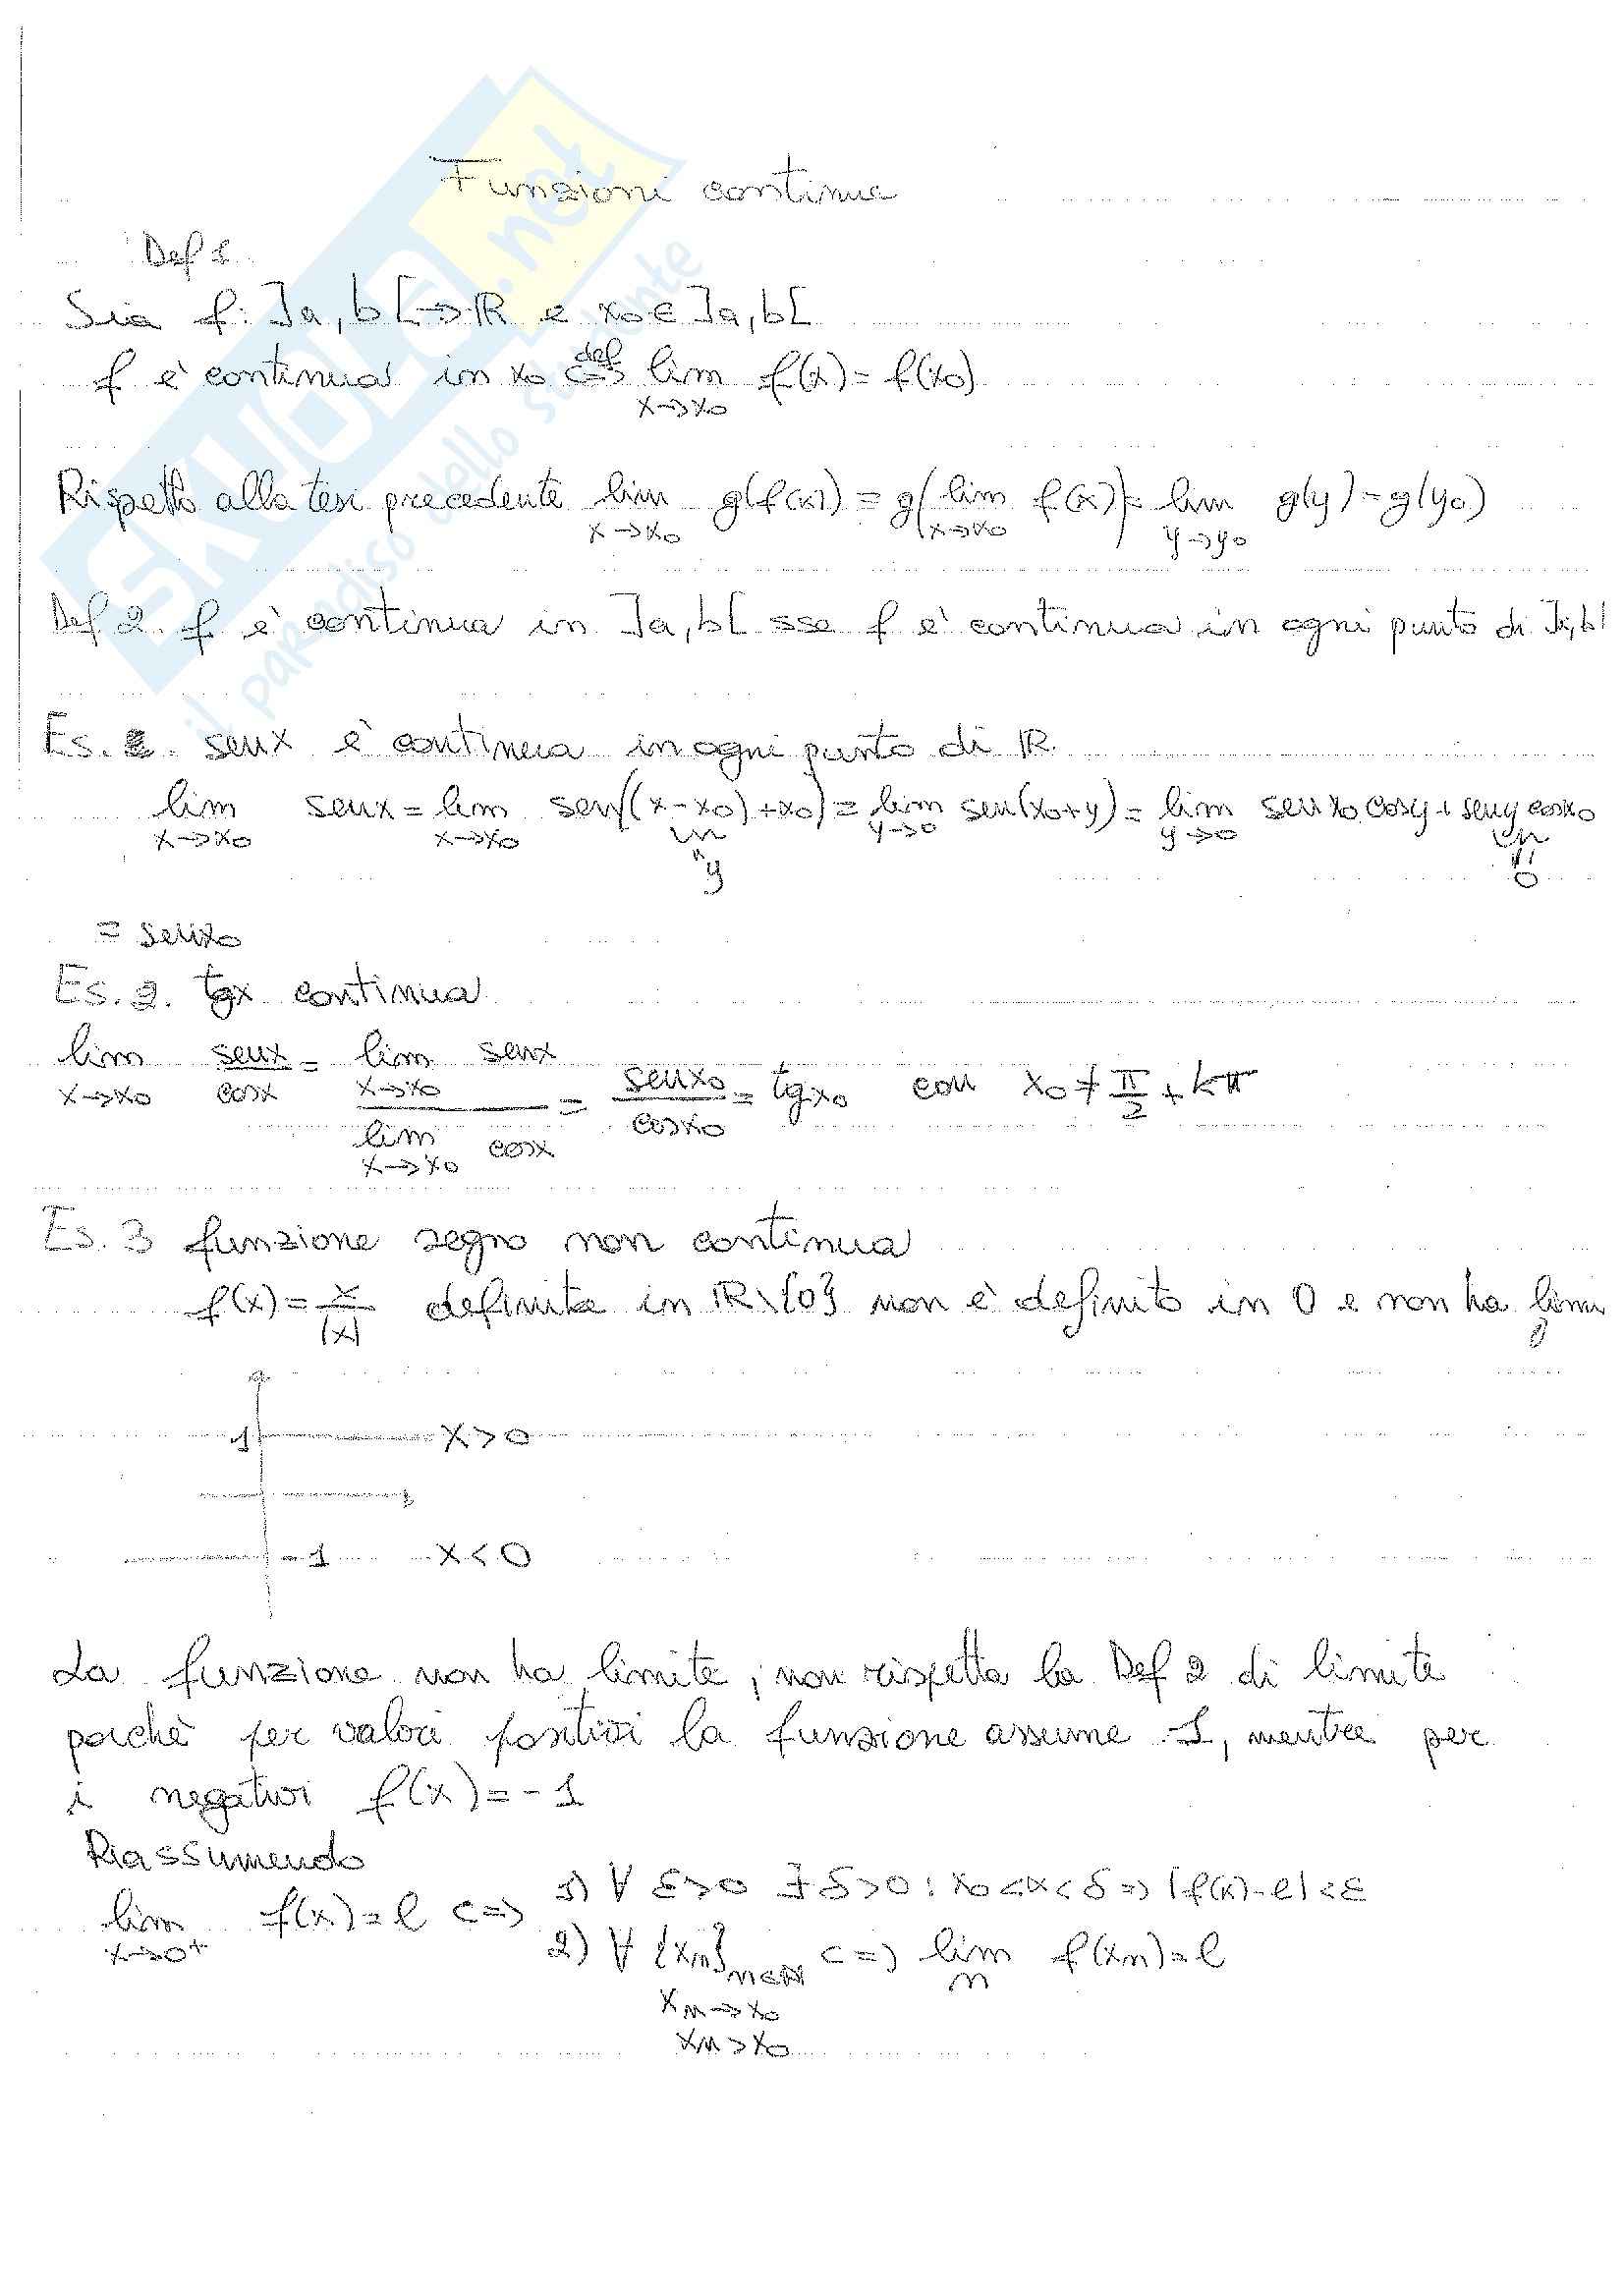 Funzioni continue
Def 1.
Sia f: ]a,b[ → ℝ e x₀ ∈ ]a,b[
f è continua in x₀ ⇔ def lim x→x₀ f(x) = f(x₀)
Rispetto alla tesi precedente lim x→x₀ g(f(x)) = g(lim x→x₀ f(x)) = lim y→y₀ g(y) = g(y₀)
Def 2. f è continua in ]a,b[ sse f è continua in ogni punto di ]a,b[
Es. 1. senx è continua in ogni punto di ℝ.
lim x→x₀ senx = lim x→x₀ sen((x-x₀)+x₀) = lim y→0 sen(x₀+y) = lim y→0 senx₀ cosy + seny cosx₀
y
0
= senx₀
Es. 2. tgx continua
lim x→x₀ senx/cosx = lim x→x₀ senx / lim x→x₀ cosx = senx₀/cosx₀ = tgx₀ con x₀ ≠ π/2 + kπ
Es. 3 funzione segno non continua
f(x) = x/|x| definita in ℝ\{0} non è definito in 0 e non ha limi
1 x>0
-1 x<0
La funzione non ha limite, non rispetta la Def 2 di limite
poiché per valori positivi la funzione assume 1, mentre per
i negativi f(x) = -1
Riassumendo
lim x→0⁺ f(x) = l ⇔ 1) ∀ ε>0 ∃ δ>0 : x₀<x<δ ⇒ |f(x)-l|<ε
2) ∀ {xn}n∈ℕ ⇔ lim n f(xn) = l
xn→x₀
xn>x₀
SKUOLA.net
il paradiso dello studente